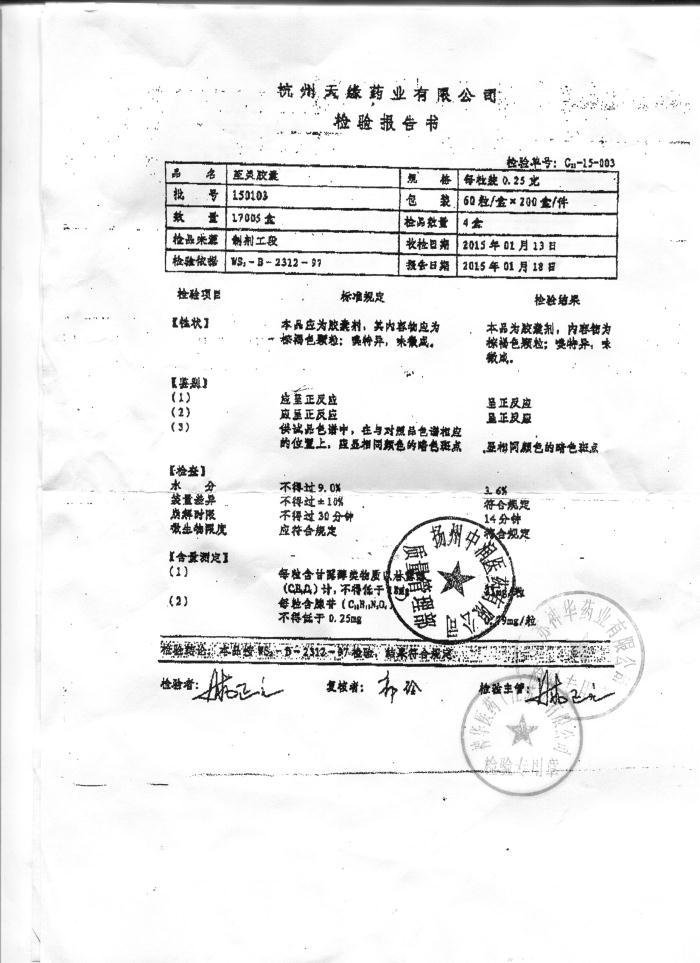 杭州天缘药业有限公司
检验报告书
检验单号: G₂₂-15-003
品 名 至灵胶囊 规 格 每粒装 0.25 克
批 号 150103 包 装 60 粒/盒×200 盒/件
数 量 17005 盒 检品数量 4 盒
检品来源 制剂工段 收检日期 2015 年 01 月 13 日
检验依据 WS₃-B-2312-97 报告日期 2015 年 01 月 18 日
检验项目 标准规定 检验结果
【性状】 本品应为胶囊剂，其内容物应为 本品为胶囊剂，内容物为
棕褐色颗粒；嗅特异，味微咸。 棕褐色颗粒；嗅特异，味
微咸。
【鉴别】
(1) 应呈正反应 呈正反应
(2) 应呈正反应 呈正反应
(3) 供试品色谱中，在与对照品色谱相应
的位置上，应显相同颜色的暗色斑点 显相同颜色的暗色斑点
【检查】
水 分 不得过 9.0% 3.6%
装量差异 不得过±10% 符合规定
崩解时限 不得过 30 分钟 14 分钟
微生物限度 应符合规定 符合规定
【含量测定】
(1) 每粒含甘露醇类物质以甘露醇
计，不得低于 /粒
(2) 每粒含腺苷
不得低于 0.25mg mg/粒
检验结论：本品按 WS₃-B-2312-97 检验，结果符合规定
检验者： 复核者： 检验主管：
扬州中湘医药有限公司
质量管理部
华药业有限公司
专用
华医药 有限公司
检验专用章